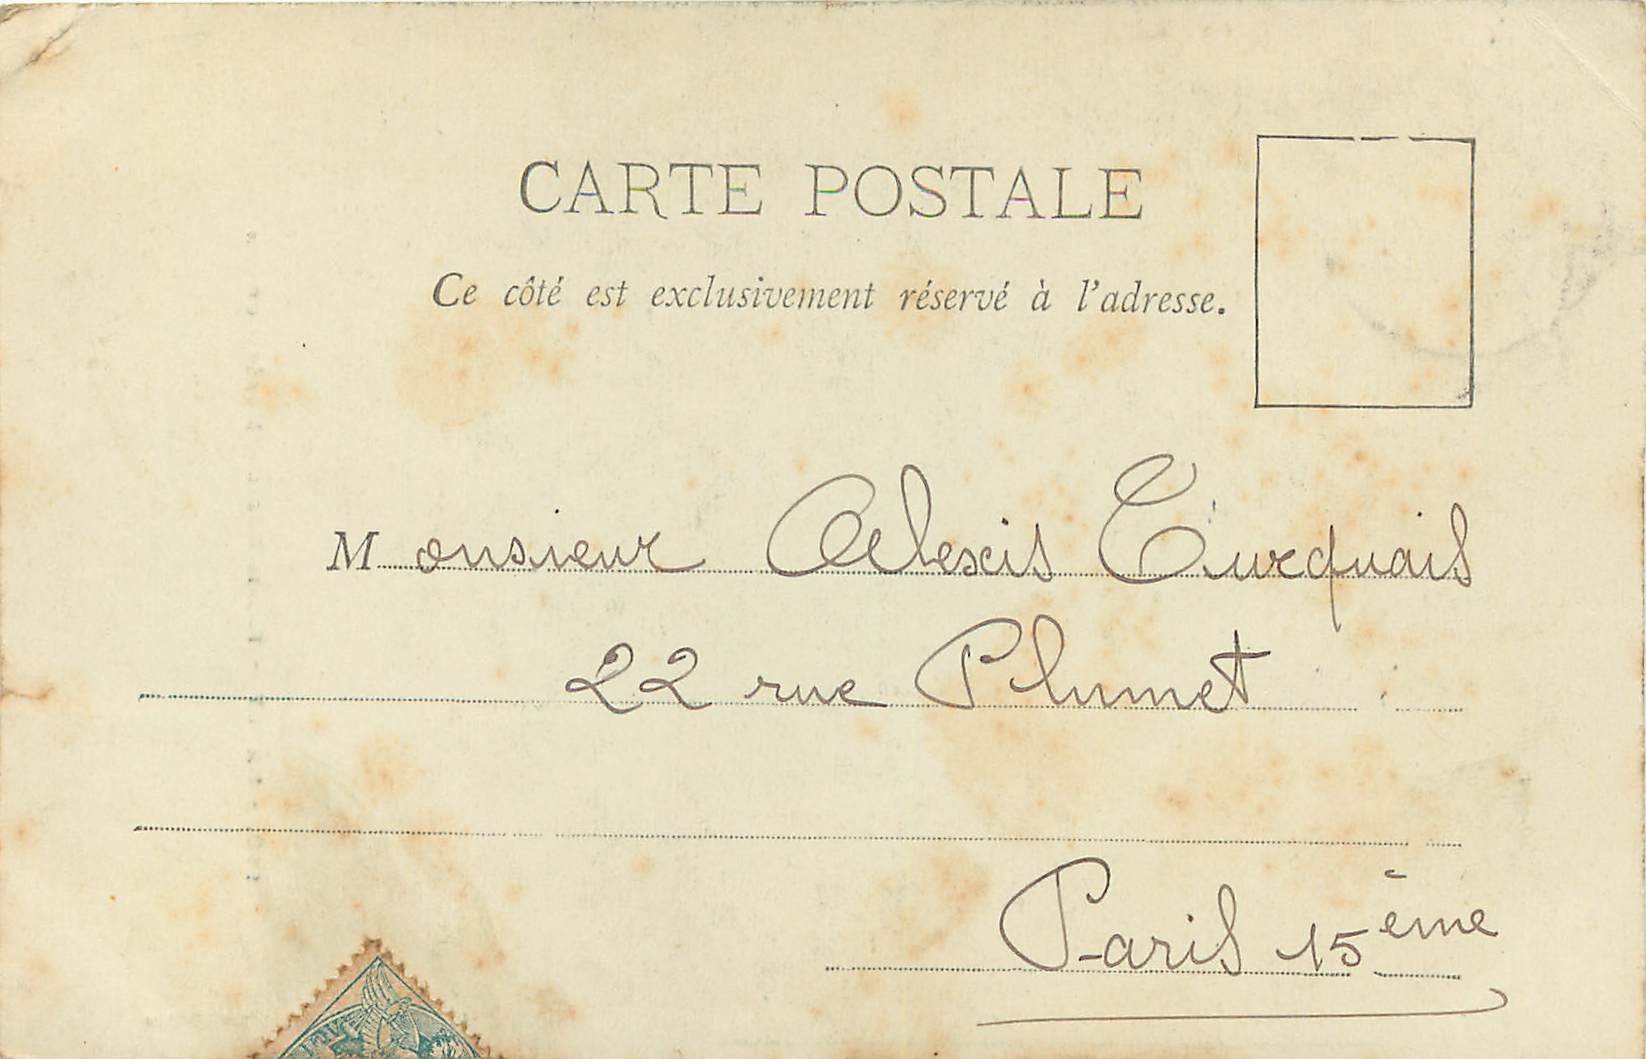 CARTE POSTALE
Ce côté est exclusivement réservé à l'adresse.
Monsieur Alexis Turquais
22 rue Plumet
Paris 15ème